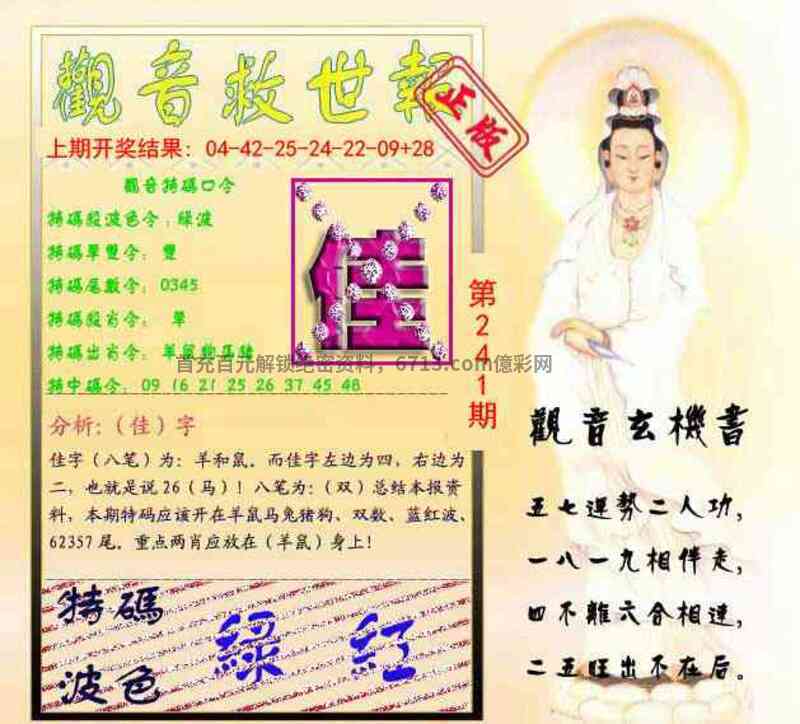 觀音救世報
正版
上期开奖结果：04-42-25-24-22-09+28
觀音特碼口令
特碼殺波色令：綠波
特碼單雙令：雙
特碼尾數令：0345
特碼殺肖令：單
特碼出肖令：羊鼠狗
特中碼令：09 16 21 25 26 37 45 48
佳
第241期
首充百元解锁绝密资料，6715.com億彩网
分析：（佳）字
佳字（八笔）为：羊和鼠．而佳字左边为四，右边为
二，也就是说26（马）！八笔为：（双）总结本报资
料，本期特码应该开在羊鼠马兔猪狗、双数、蓝红波、
62357尾．重点两肖应放在（羊鼠）身上！
特碼
波色
綠 紅
觀音玄機書
五七運勢二人功，
一八一九相伴走，
四不離六合相連，
二五旺出不在后。